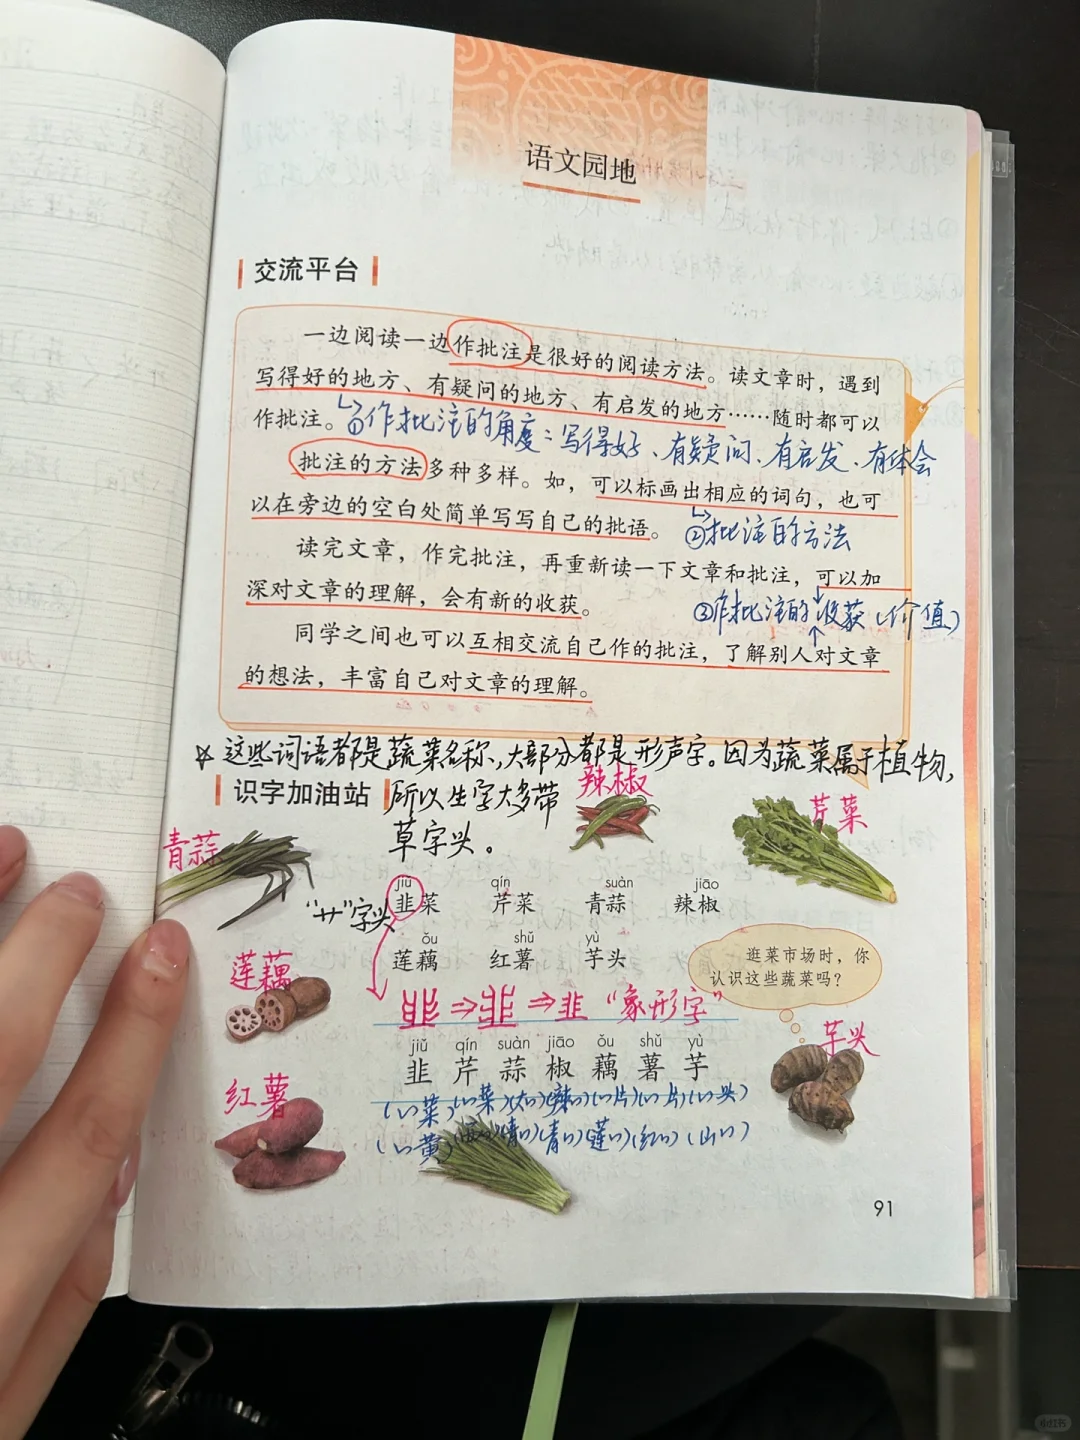 语文园地
交流平台
一边阅读一边作批注是很好的阅读方法。读文章时，遇到
写得好的地方、有疑问的地方、有启发的地方……随时都可以
作批注。①作批注的角度：写得好、有疑问、有启发、有体会
批注的方法多种多样。如，可以标画出相应的词句，也可
以在旁边的空白处简单写写自己的批语。②批注的方法
读完文章，作完批注，再重新读一下文章和批注，可以加
深对文章的理解，会有新的收获。③作批注的收获（价值）
同学之间也可以互相交流自己作的批注，了解别人对文章
的想法，丰富自己对文章的理解。
☆这些词语都是蔬菜名称，大部分都是形声字。因为蔬菜属于植物，
识字加油站 所以生字大多带
草字头。
辣椒
芹菜
青蒜
jiǔ qín suàn jiāo
"艹"字头 韭菜 芹菜 青蒜 辣椒
ǒu shǔ yù
莲藕 红薯 芋头
逛菜市场时，你
认识这些蔬菜吗？
莲藕
韭 "象形字"
芋头
jiǔ qín suàn jiāo ǒu shǔ yù
韭 芹 蒜 椒 藕 薯 芋
红薯
(〃菜)(〃菜)(大〃)(辣〃)(〃片)(〃片)(〃头)
(〃黄) (青〃)(青〃)(莲〃)(红〃)(山〃)
91